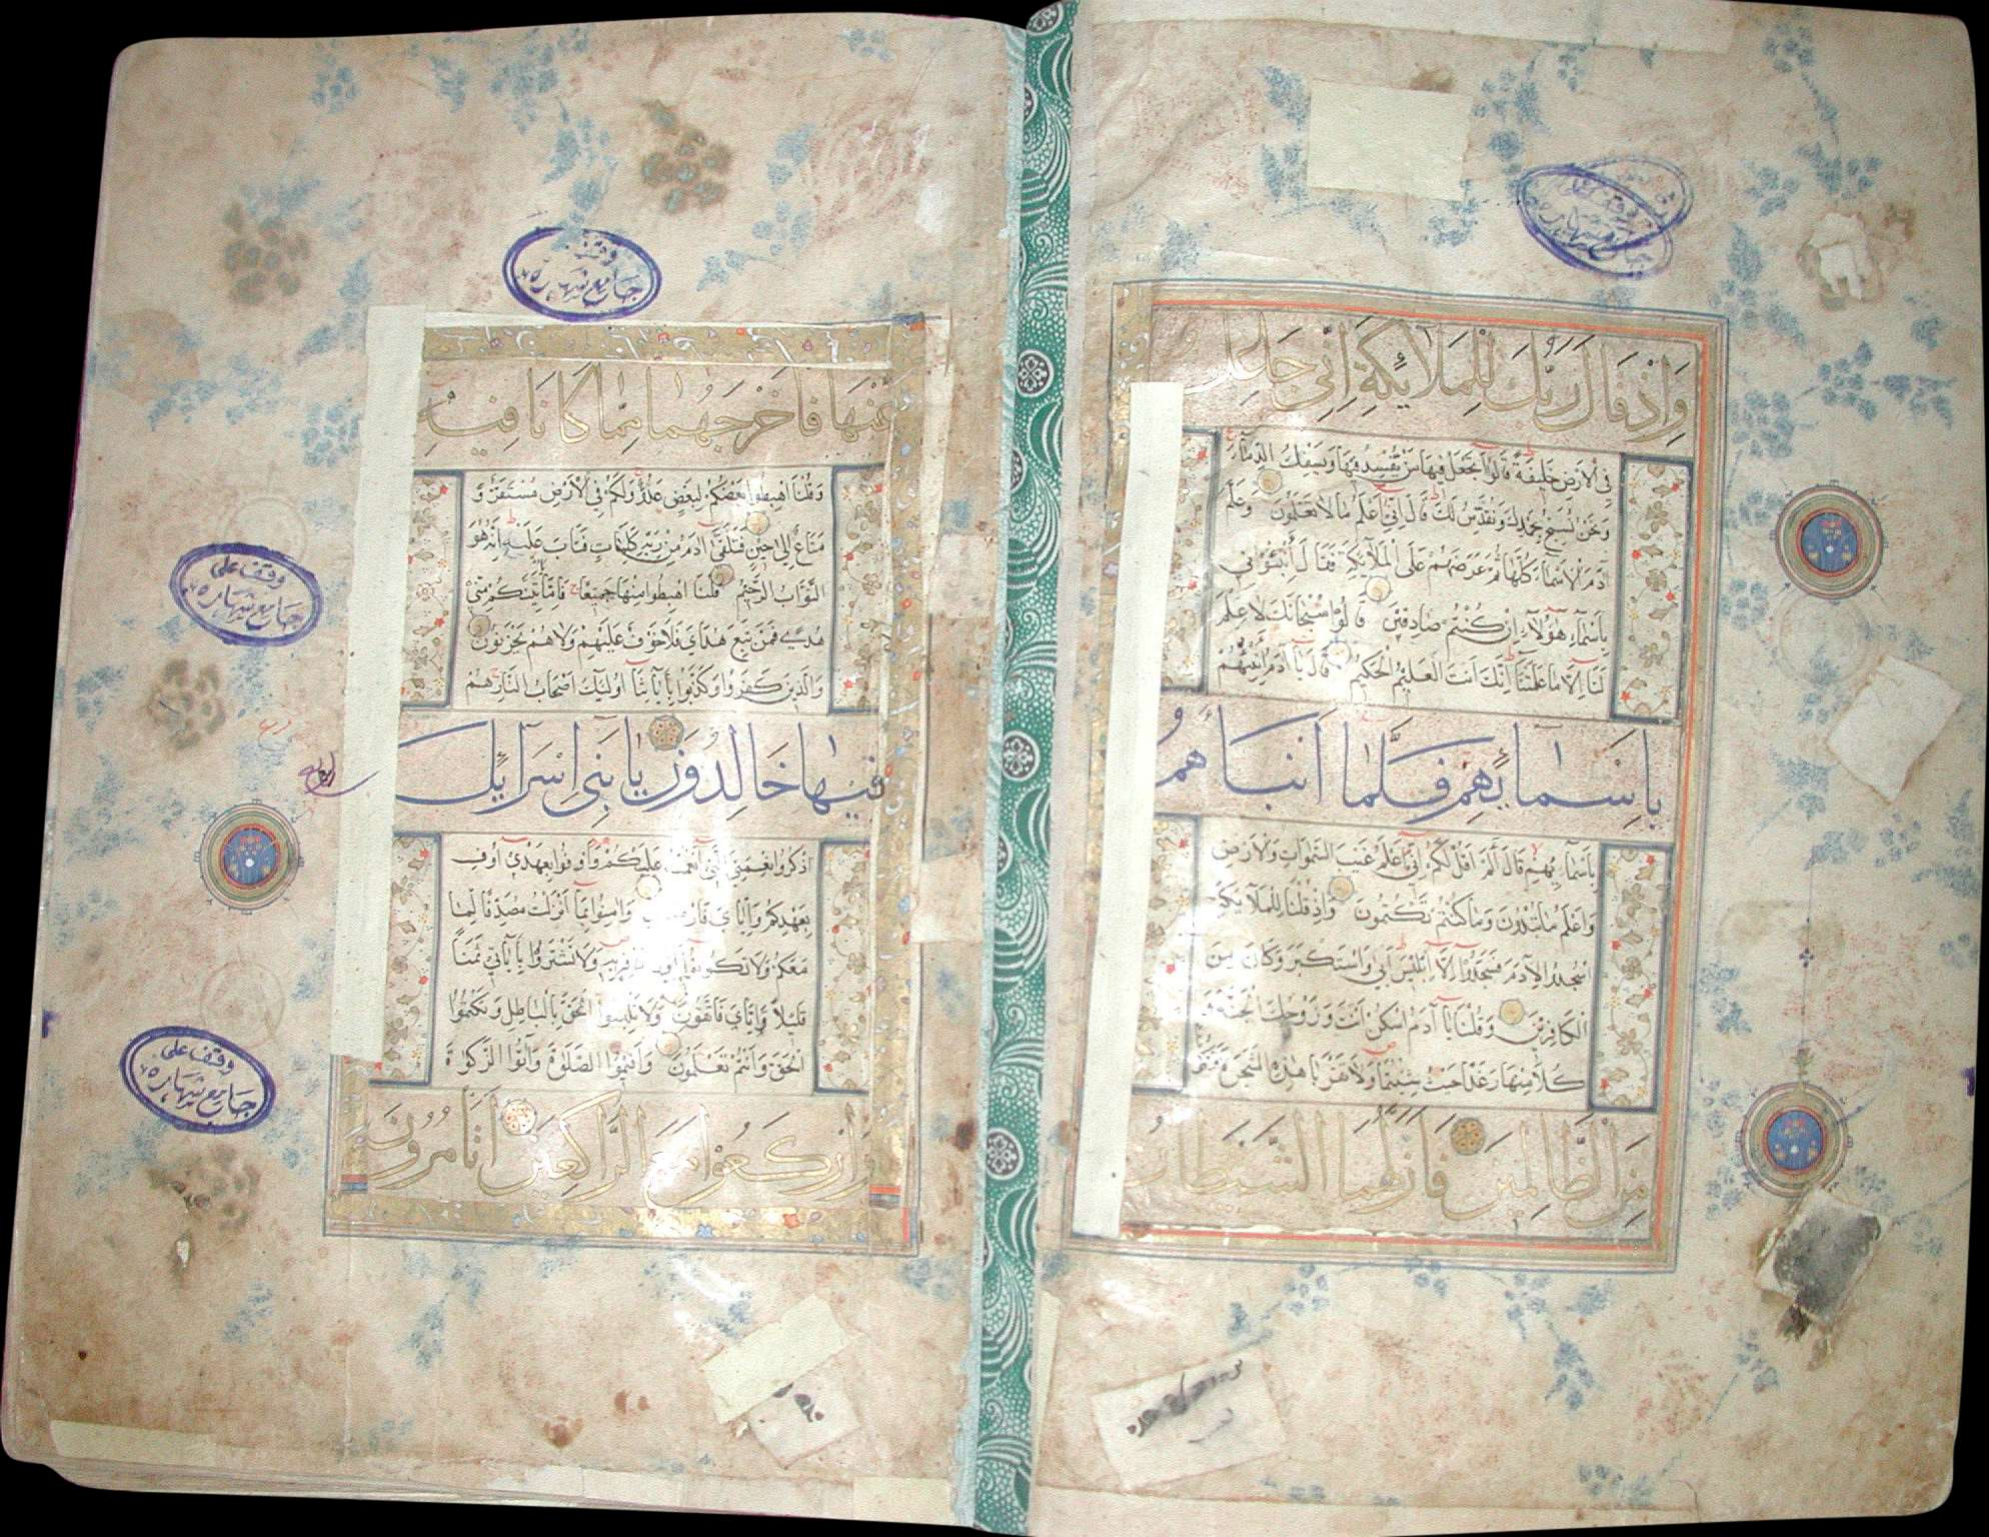 وَإِذْ قَالَ رَبُّكَ لِلْمَلَائِكَةِ إِنِّي جَاعِلٌ
فِي الْأَرْضِ خَلِيفَةً قَالُوا أَتَجْعَلُ فِيهَا مَنْ يُفْسِدُ فِيهَا وَيَسْفِكُ الدِّمَاءَ
وَنَحْنُ نُسَبِّحُ بِحَمْدِكَ وَنُقَدِّسُ لَكَ قَالَ إِنِّي أَعْلَمُ مَا لَا تَعْلَمُونَ وَعَلَّمَ
آدَمَ الْأَسْمَاءَ كُلَّهَا ثُمَّ عَرَضَهُمْ عَلَى الْمَلَائِكَةِ فَقَالَ أَنْبِئُونِي
بِأَسْمَاءِ هَؤُلَاءِ إِنْ كُنْتُمْ صَادِقِينَ قَالُوا سُبْحَانَكَ لَا عِلْمَ
لَنَا إِلَّا مَا عَلَّمْتَنَا إِنَّكَ أَنْتَ الْعَلِيمُ الْحَكِيمُ قَالَ يَا آدَمُ أَنْبِئْهُمْ
بِأَسْمَائِهِمْ فَلَمَّا أَنْبَأَهُمْ
بِأَسْمَائِهِمْ قَالَ أَلَمْ أَقُلْ لَكُمْ إِنِّي أَعْلَمُ غَيْبَ السَّمَوَاتِ وَالْأَرْضِ
وَأَعْلَمُ مَا تُبْدُونَ وَمَا كُنْتُمْ تَكْتُمُونَ وَإِذْ قُلْنَا لِلْمَلَائِكَةِ
اسْجُدُوا لِآدَمَ فَسَجَدُوا إِلَّا إِبْلِيسَ أَبَى وَاسْتَكْبَرَ وَكَانَ مِنَ
الْكَافِرِينَ وَقُلْنَا يَا آدَمُ اسْكُنْ أَنْتَ وَزَوْجُكَ الْجَنَّةَ وَ
كُلَا مِنْهَا رَغَدًا حَيْثُ شِئْتُمَا وَلَا تَقْرَبَا هَذِهِ الشَّجَرَةَ فَتَكُونَا
مِنَ الظَّالِمِينَ فَأَزَلَّهُمَا الشَّيْطَانُ
عَنْهَا فَأَخْرَجَهُمَا مِمَّا كَانَا فِيهِ
وَقُلْنَا اهْبِطُوا بَعْضُكُمْ لِبَعْضٍ عَدُوٌّ وَلَكُمْ فِي الْأَرْضِ مُسْتَقَرٌّ وَ
مَتَاعٌ إِلَى حِينٍ فَتَلَقَّى آدَمُ مِنْ رَبِّهِ كَلِمَاتٍ فَتَابَ عَلَيْهِ إِنَّهُ هُوَ
التَّوَّابُ الرَّحِيمُ قُلْنَا اهْبِطُوا مِنْهَا جَمِيعًا فَإِمَّا يَأْتِيَنَّكُمْ مِنِّي
هُدًى فَمَنْ تَبِعَ هُدَايَ فَلَا خَوْفٌ عَلَيْهِمْ وَلَا هُمْ يَحْزَنُونَ
وَالَّذِينَ كَفَرُوا وَكَذَّبُوا بِآيَاتِنَا أُولَئِكَ أَصْحَابُ النَّارِ هُمْ
فِيهَا خَالِدُونَ يَا بَنِي إِسْرَائِيلَ
اذْكُرُوا نِعْمَتِيَ الَّتِي أَنْعَمْتُ عَلَيْكُمْ وَأَوْفُوا بِعَهْدِي أُوفِ
بِعَهْدِكُمْ وَإِيَّايَ فَارْهَبُونِ وَآمِنُوا بِمَا أَنْزَلْتُ مُصَدِّقًا لِمَا
مَعَكُمْ وَلَا تَكُونُوا أَوَّلَ كَافِرٍ بِهِ وَلَا تَشْتَرُوا بِآيَاتِي ثَمَنًا
قَلِيلًا وَإِيَّايَ فَاتَّقُونِ وَلَا تَلْبِسُوا الْحَقَّ بِالْبَاطِلِ وَتَكْتُمُوا
الْحَقَّ وَأَنْتُمْ تَعْلَمُونَ وَأَقِيمُوا الصَّلَوةَ وَآتُوا الزَّكَوةَ
وَارْكَعُوا مَعَ الرَّاكِعِينَ أَتَأْمُرُونَ
وقف
جامع شهاره
وقف على
جامع شهاره
وقف على
جامع شهاره